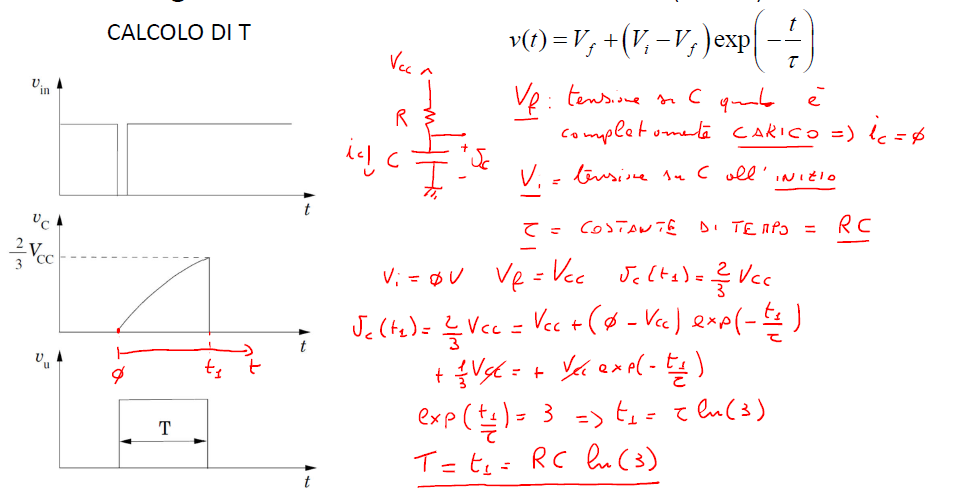 CALCOLO DI T
v(t) = V_f + (V_i − V_f) exp(− t/τ)
v_in
t
v_C
2/3 V_CC
t
∅ t_1 t
v_u
T
t
V_cc
R
i_c C + v_c −
V_f : tensione su C quando è
completamente CARICO => i_c = ∅
V_i = tensione su C all'INIZIO
τ = COSTANTE DI TEMPO = RC
V_i = ∅V V_f = V_cc v_c(t_1) = 2/3 V_cc
v_c(t_1) = 2/3 V_cc = V_cc + (∅ − V_cc) exp(− t_1/τ)
+ 1/3 V_cc = + V_cc exp(− t_1/τ)
exp(t_1/τ) = 3 => t_1 = τ ln(3)
T = t_1 = RC ln(3)